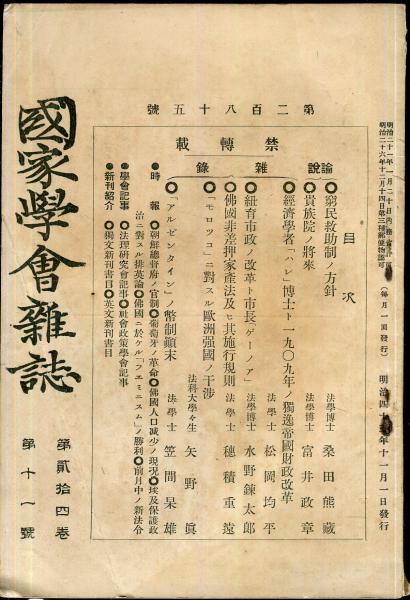 明治二十六年十二月十四日第三種郵便物認可
(每月一回發行)
年十一月一日發行
第二百八十五號
禁轉載
目次
論說
●窮民救助制ノ方針
法學博士 桑田熊藏
●貴族院ノ將來
法學博士 富井政章
●經濟學者「ハレ」博士ト一九〇九年ノ獨逸帝國財政改革
法學士 松岡均平
雜錄
●紐育市政ノ改革ト市長「ゲーノア」
法學博士 水野鍊太郎
●佛國非差押家產法及ヒ其施行規則
法學士 穗積重遠
●「モロツコ」ニ對スル歐洲强國ノ干涉
法科大學々生 矢野眞
●「アルゼンタイン」ノ幣制顚末
法學士 笠間杲雄
●時報
●朝鮮總督府ノ官制●葡萄牙ノ革命●佛國人口減少ノ現況●埃及保護政
治ニ對スル排英論●佛國ニ於ケル「フエミニスム」ノ勝利●前月中ノ新法令
●學會記事
●法理硏究會記事●社會政策學會記事
●新刊紹介
●獨文新刊書目●英文新刊書目
國家學會雜誌
第貳拾四卷
第十一號